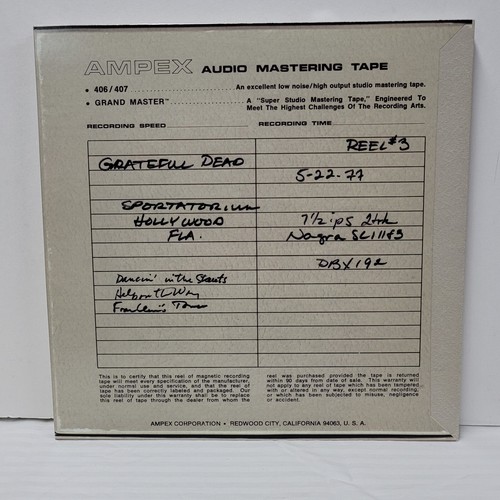 AMPEX AUDIO MASTERING TAPE
• 406/407 ........ An excellent low noise/high output studio mastering tape.
• GRAND MASTER™ ........ A "Super Studio Mastering Tape," Engineered To
Meet The Highest Challenges Of The Recording Arts.
RECORDING SPEED RECORDING TIME
REEL #3
GRATEFUL DEAD
5-22-77
SPORTATORIUM
HOLLYWOOD 7½ ips 2trk
FLA. Nagra
DBX 192
Dancin' in the Streets
Help on the Way
Franklin's Tower
This is to certify that this reel of magnetic recording
tape will meet every specification of the manufacturer,
under normal use and service, and that the reel of
tape has been correctly labeled and packaged. Our
sole liability under this warranty shall be to replace
this reel of tape through the dealer from whom the
reel was purchased provided the tape is returned
within 90 days from date of sale. This warranty will
not apply to any reel of tape which has been tampered
with or altered in any way, except normal recording,
or which has been subjected to misuse, negligence
or accident.
AMPEX CORPORATION • REDWOOD CITY, CALIFORNIA 94063, U. S. A.